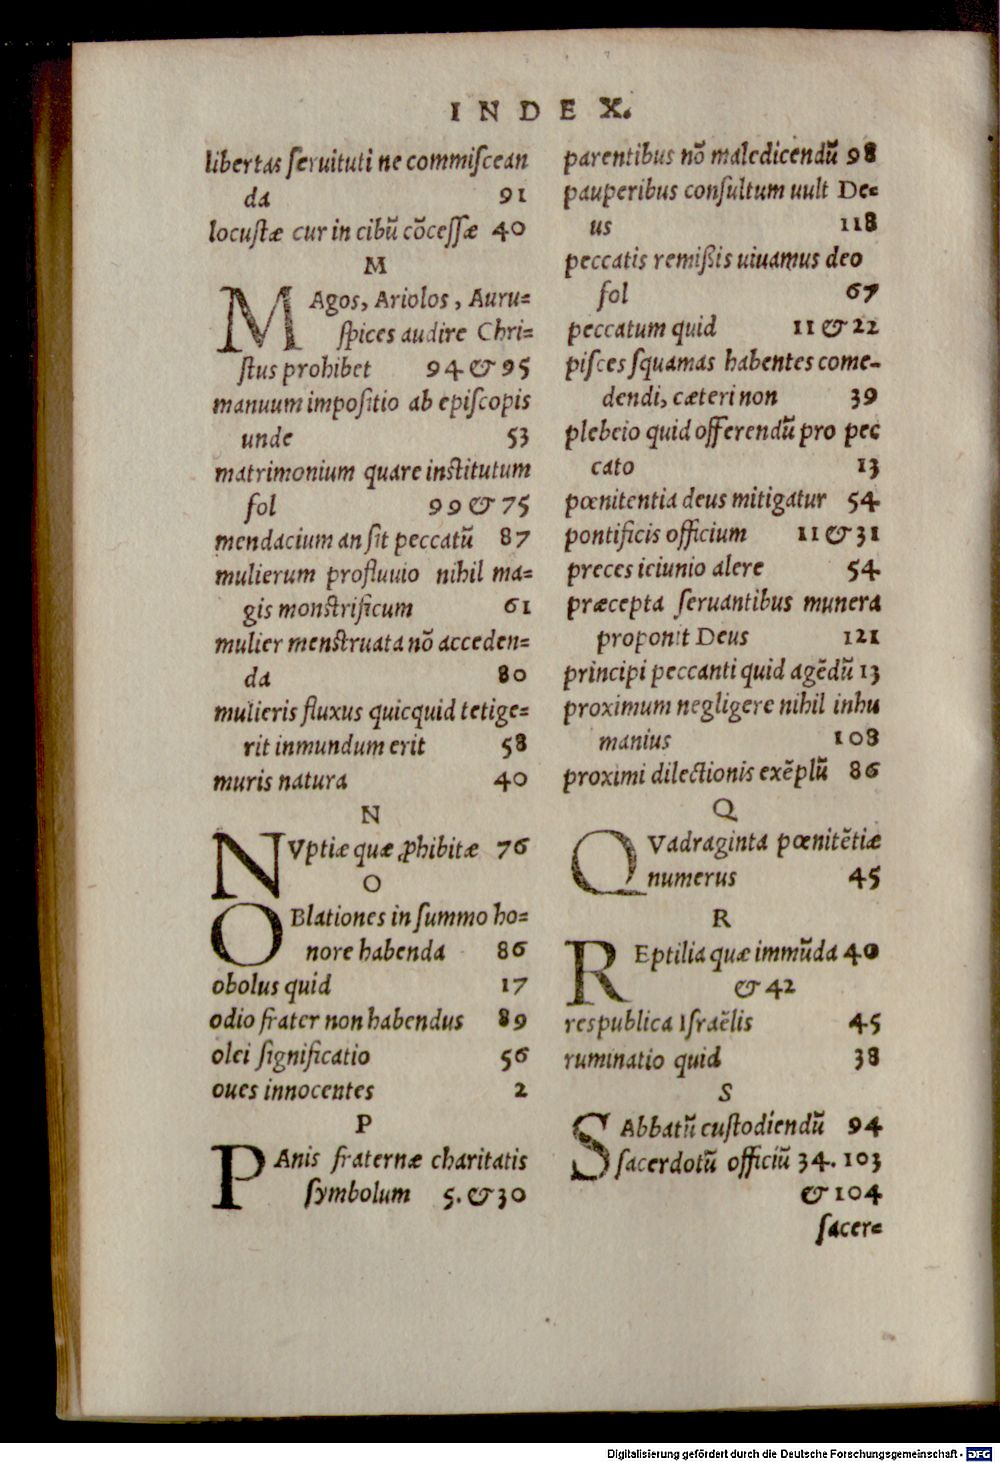 INDEX.
libertas ſeruituti ne commiſcean
da 91
locuſtæ cur in cibũ cõceſſæ 40
M
MAgos, Ariolos, Auru=
ſpices audire Chri=
ſtus prohibet 94 & 95
manuum impoſitio ab epiſcopis
unde 53
matrimonium quare inſtitutum
fol 99 & 75
mendacium an ſit peccatũ 87
mulierum profluuio nihil ma=
gis monſtrificum 61
mulier menſtruata nõ acceden=
da 80
mulieris fluxus quicquid tetige=
rit inmundum erit 58
muris natura 40
N
NVptiæ quæ ꝓhibitæ 76
O
OBlationes in ſummo ho=
nore habenda 86
obolus quid 17
odio frater non habendus 89
olei ſignificatio 56
oues innocentes 2
P
PAnis fraternæ charitatis
ſymbolum 5. & 30
parentibus nõ maledicendũ 98
pauperibus conſultum uult De=
us 118
peccatis remißis uiuamus deo
fol 67
peccatum quid 11 & 22
piſces ſquamas habentes come-
dendi, cæteri non 39
plebeio quid offerendũ pro pec
cato 13
pœnitentia deus mitigatur 54
pontificis officium 11 & 31
preces ieiunio alere 54
præcepta ſeruantibus munera
proponit Deus 121
principi peccanti quid agẽdũ 13
proximum negligere nihil inhu
manius 108
proximi dilectionis exẽplũ 86
Q
QVadraginta pœnitẽtiæ
numerus 45
R
REptilia quæ immũda 40
& 42
respublica Iſraẽlis 45
ruminatio quid 38
S
SAbbatũ cuſtodiendũ 94
ſacerdotũ officiũ 34. 103
& 104
ſacer=
Digitalisierung gefördert durch die Deutsche Forschungsgemeinschaft - DFG